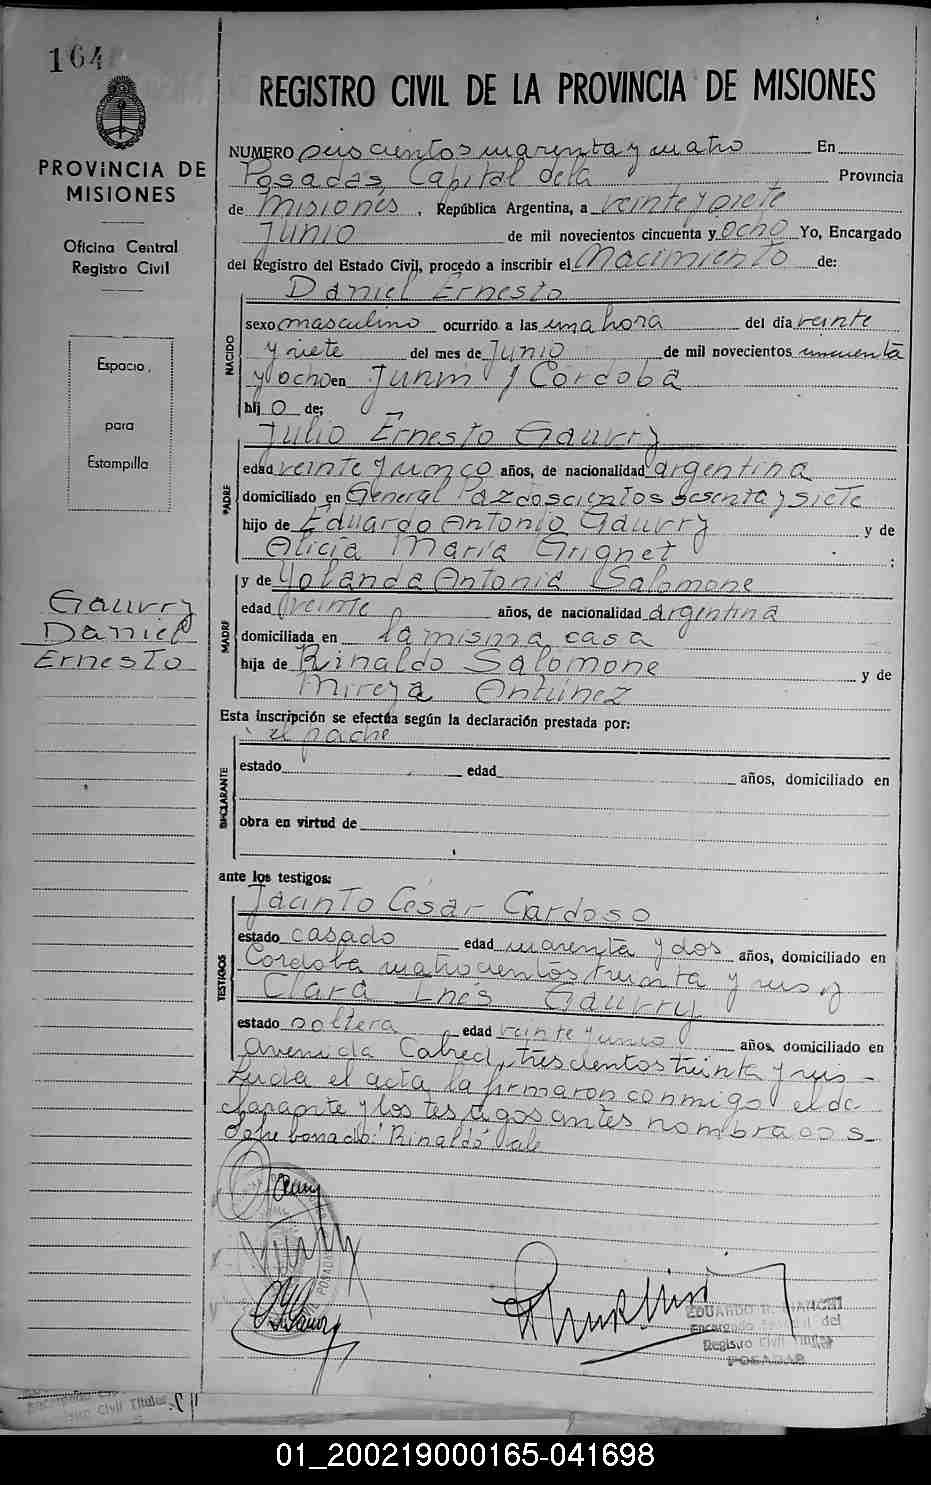 164
PROVINCIA DE
MISIONES
Oficina Central
Registro Civil
Espacio
para
Estampilla
Gaurry
Daniel
Ernesto
REGISTRO CIVIL DE LA PROVINCIA DE MISIONES
NUMERO seiscientos cuarenta y cuatro En
Posadas, Capital de la Provincia
de Misiones, República Argentina, a veinte y siete
Junio de mil novecientos cincuenta y ocho Yo, Encargado
del Registro del Estado Civil, procedo a inscribir el Nacimiento de:
Daniel Ernesto
NACIDO
sexo masculino ocurrido a las una hora del día veinte
y siete del mes de Junio de mil novecientos cincuenta
y ocho en Junin y Córdoba
hij o de:
Julio Ernesto Gaurry
PADRE
edad veinte y cinco años, de nacionalidad argentina
domiciliado en General Paz doscientos sesenta y siete
hijo de Eduardo Antonio Gaurry y de
Alicia María Grignet ;
y de Yolanda Antonia Salomone
MADRE
edad veinte años, de nacionalidad argentina
domiciliada en la misma casa
hija de Rinaldo Salomone y de
Mireya Antúnez
Esta inscripción se efectúa según la declaración prestada por:
el padre
DECLARANTE
estado edad años, domiciliado en
obra en virtud de
ante los testigos:
Jacinto César Cardoso
TESTIGOS
estado casado edad cuarenta y dos años, domiciliado en
Cordoba cuatrocientos treinta y seis y
Clara Inés Gaurry
estado soltera edad veinte y cinco años, domiciliado en
avenida Cabred, trescientos treinta y seis -
Leida el acta la firmaron conmigo el de
clarante y los testigos antes nombrados
Sobre borrado: Rinaldo vale
EDUARDO
Encargado del
Registro Civil Titular
POSADAS
Civil Titular
01_200219000165-041698